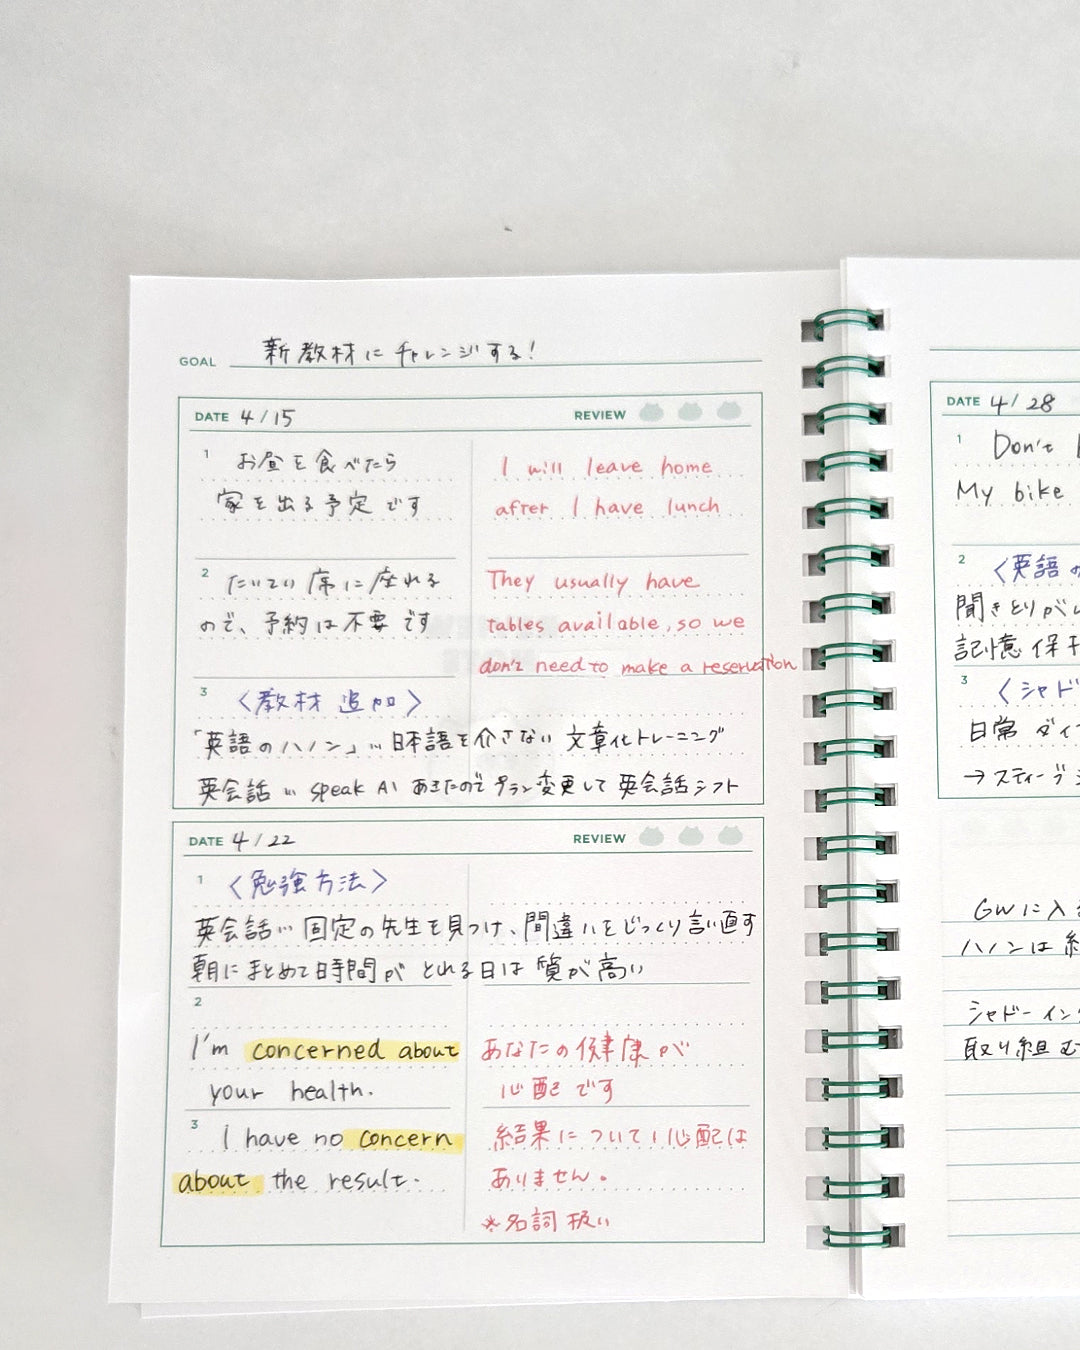 GOAL 新教材にチャレンジする!
DATE 4/15 REVIEW
1 お昼を食べたら
家を出る予定です
I will leave home
after I have lunch
2 だいたい席に座れる
ので、予約は不要です
They usually have
tables available, so we
don't need to make a reservation
3 〈教材追加〉
「英語のハノン」… 日本語を介さない文章化トレーニング
英会話… speak AI あきたのでプラン変更して英会話シフト
DATE 4/22 REVIEW
1 〈勉強方法〉
英会話… 固定の先生を見つけ、間違いをじっくり言い直す
朝にまとめて時間がとれる日は質が高い
2
I'm concerned about
your health.
あなたの健康が
心配です
3 I have no concern
about the result.
結果について心配は
ありません。
*名詞扱い
DATE 4/28
1 Don't
My bike
2 〈英語の
聞きとりが
記憶保持
3 〈シャド
日常
→スティーブ
GWに入
ハノンは
シャドーイング
取り組む